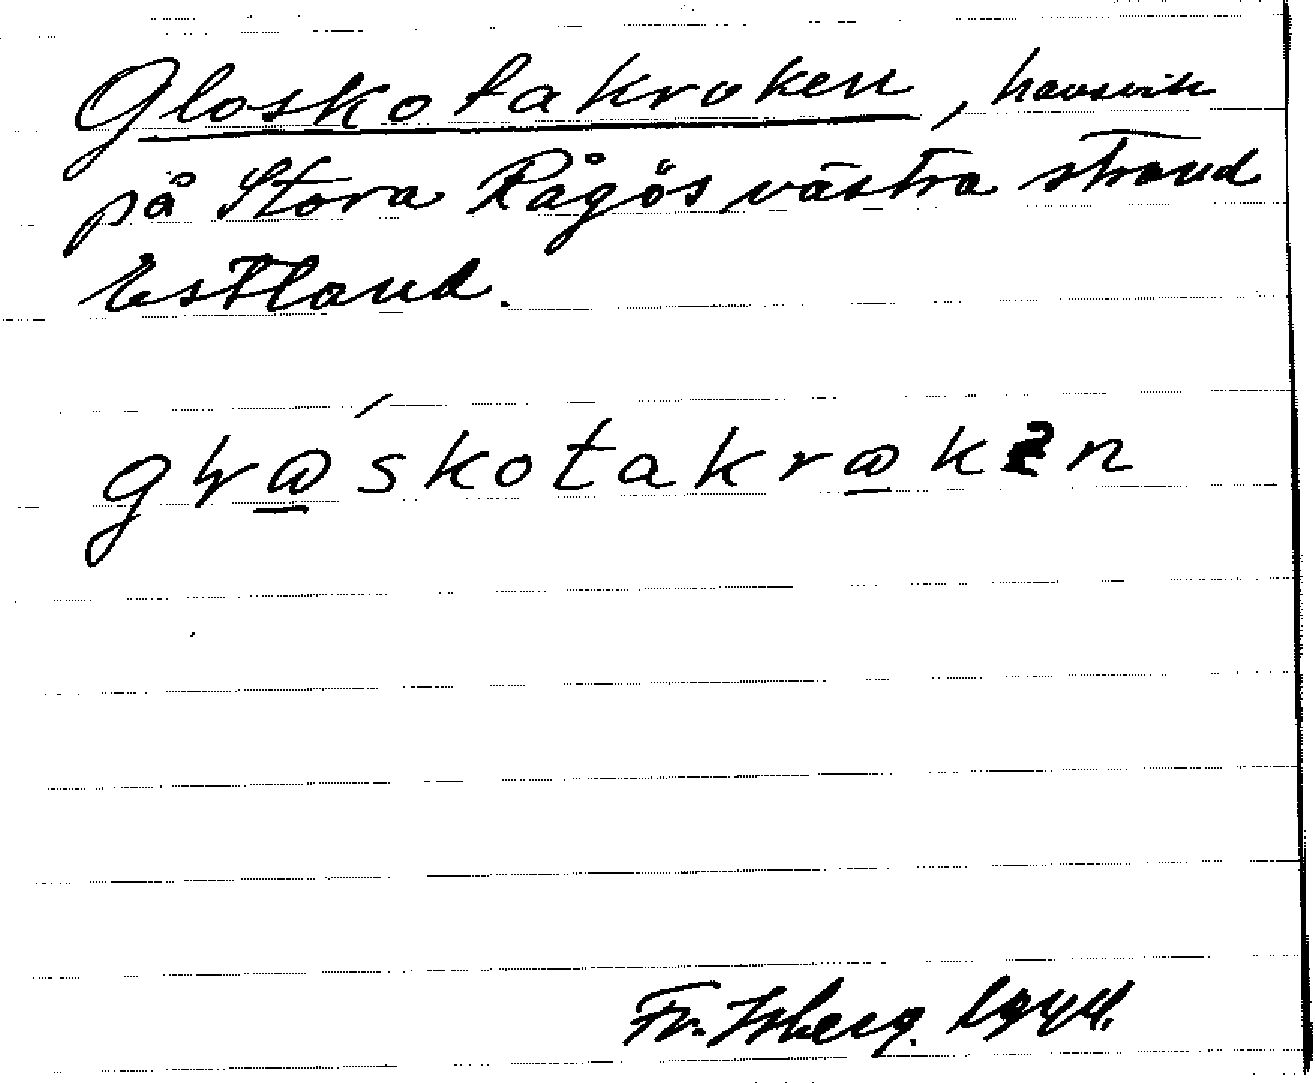 Gloskotakroken, havsvik
på Stora Rågös västra strand
Estland.
glώ̲skotakrω̲kən
Fr. Isberg. 1944.